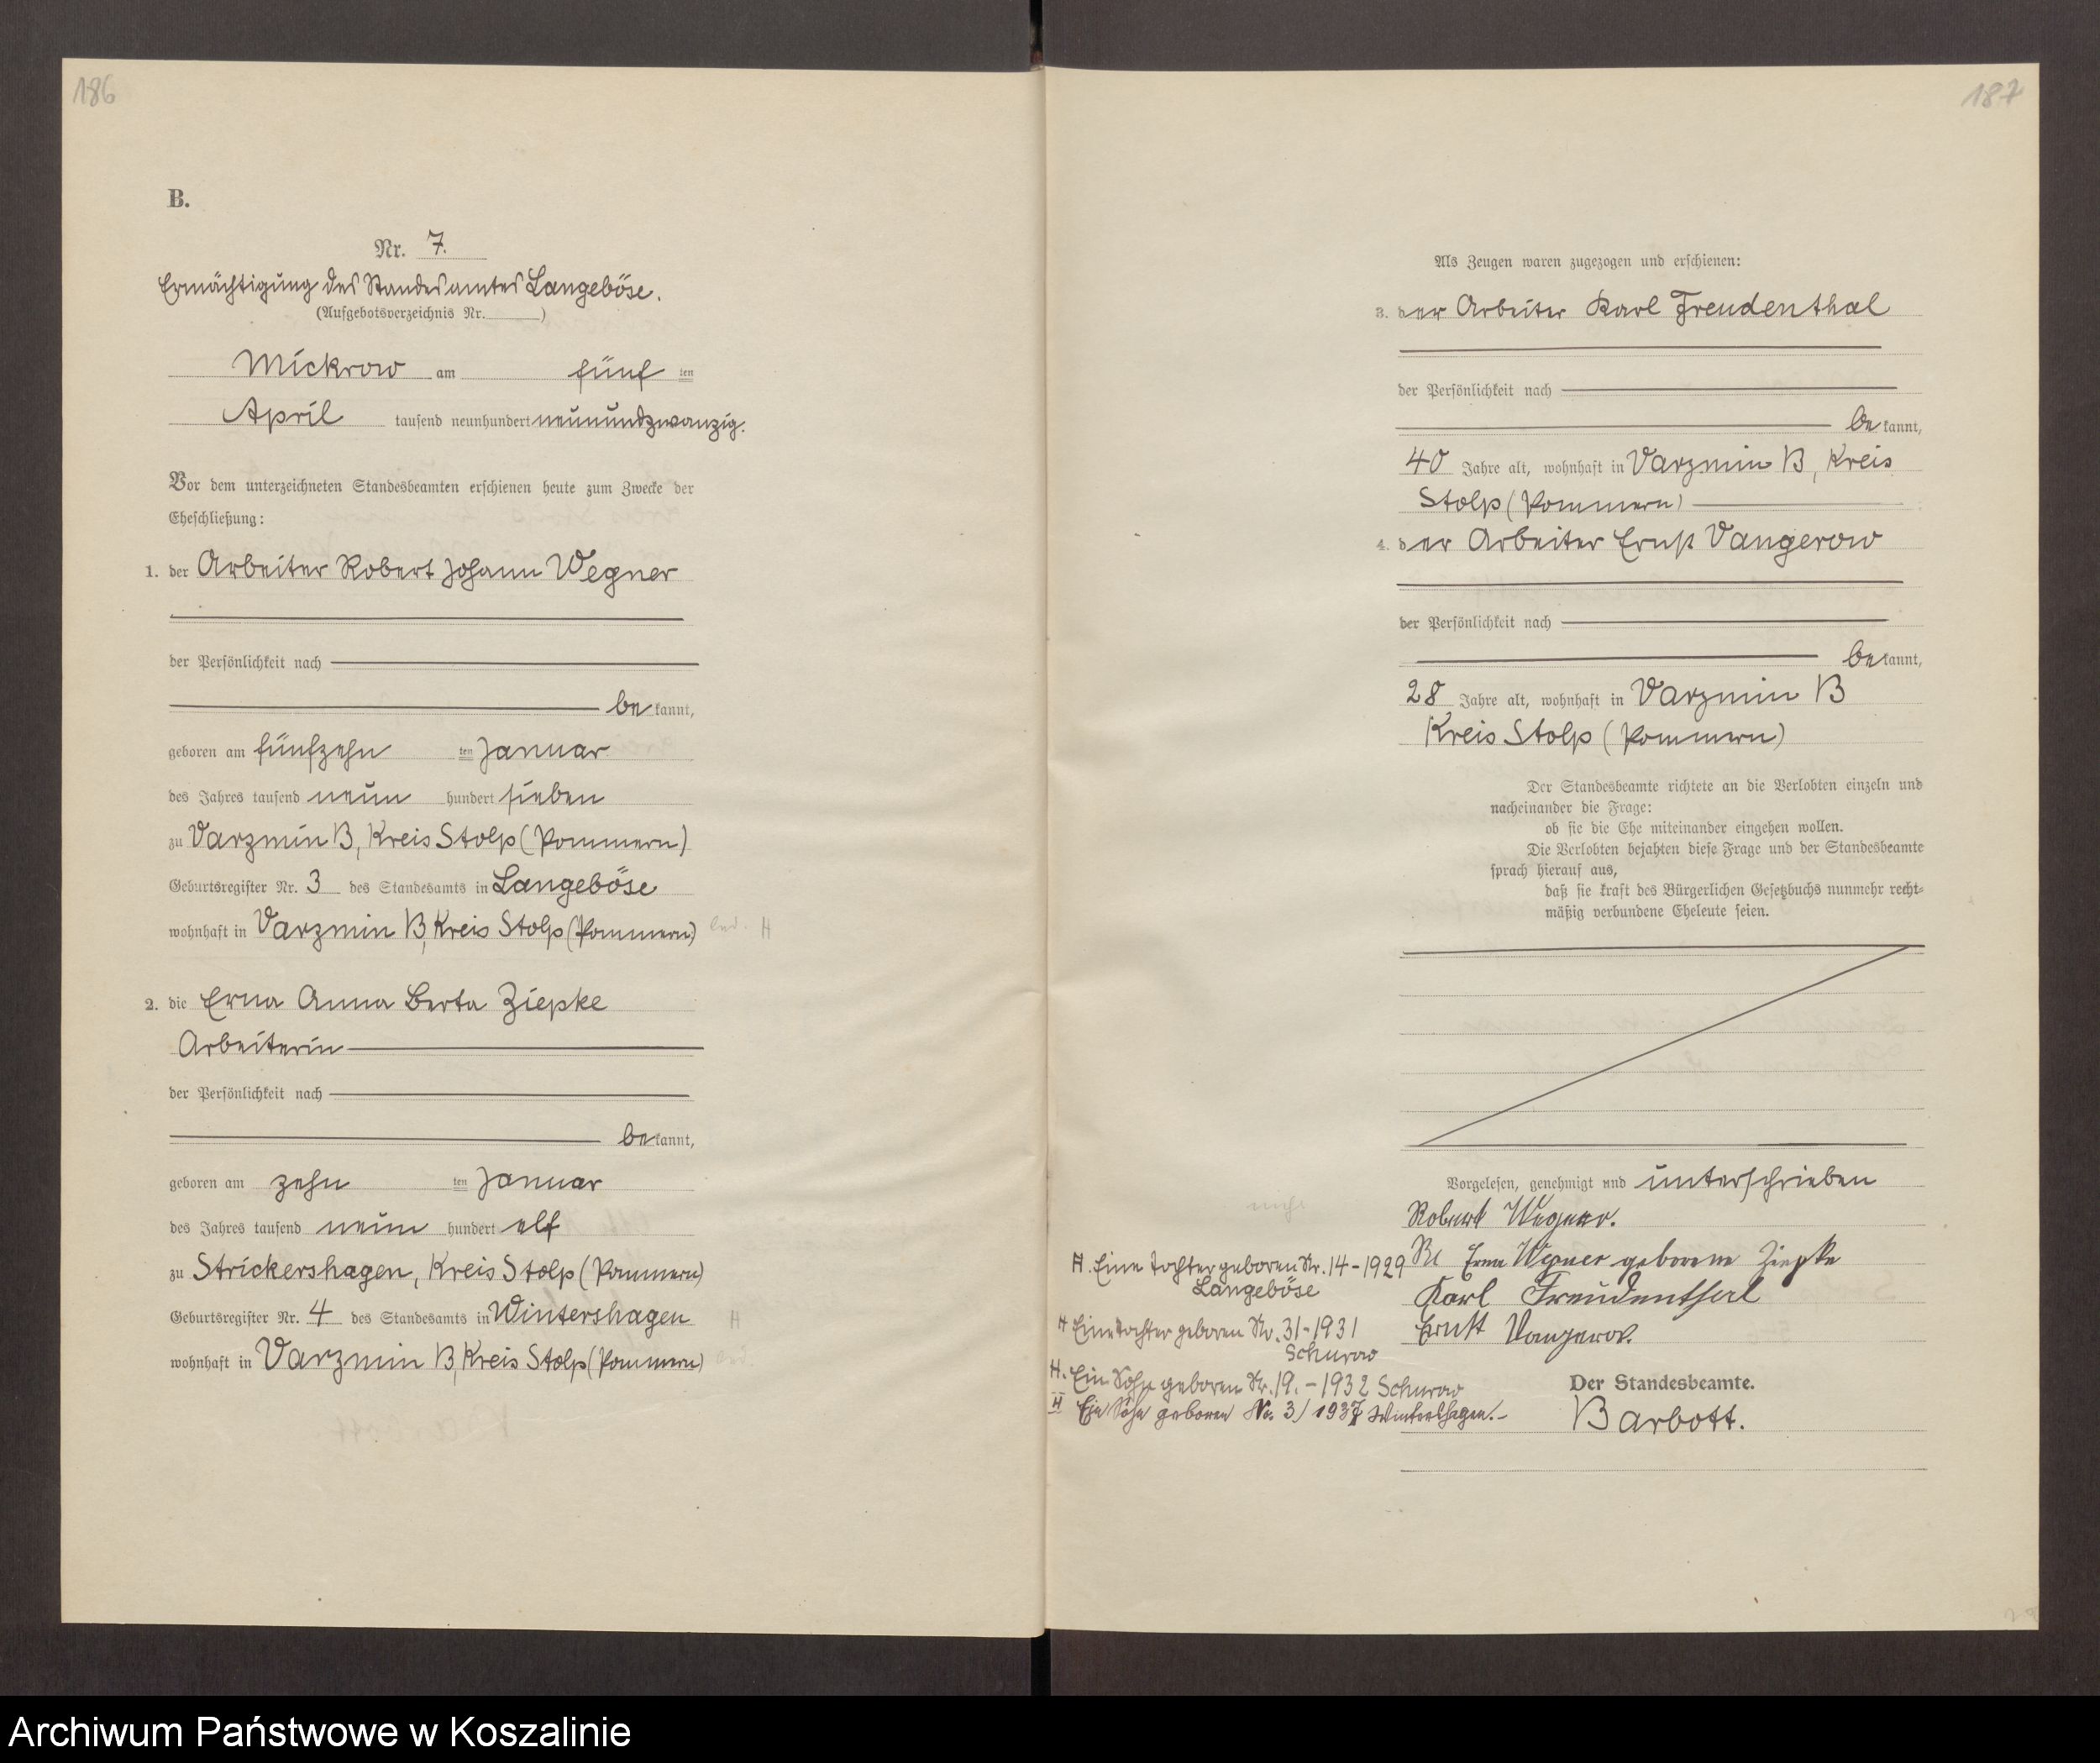 186
B.
Nr. 7.
Ermächtigung des Standesamtes Langeböse.
(Aufgebotsverzeichnis Nr. )
Mickrow am fünf ten
April tausend neunhundert neunundzwanzig.
Vor dem unterzeichneten Standesbeamten erschienen heute zum Zwecke der
Eheschließung:
1. der Arbeiter Robert Johann Wegner
der Persönlichkeit nach
be kannt,
geboren am fünfzehn ten Januar
des Jahres tausend neun hundert sieben
zu Varzmin B, Kreis Stolp (Pommern)
Geburtsregister Nr. 3 des Standesamts in Langeböse
wohnhaft in Varzmin B, Kreis Stolp (Pommern) led. H
2. die Erna Anna Berta Ziepke
Arbeiterin
der Persönlichkeit nach
be kannt,
geboren am zehn ten Januar
des Jahres tausend neun hundert elf
zu Strickershagen, Kreis Stolp (Pommern)
Geburtsregister Nr. 4 des Standesamts in Wintershagen H
wohnhaft in Varzmin B, Kreis Stolp (Pommern) led.
187
Als Zeugen waren zugezogen und erschienen:
3. der Arbeiter Karl Freudenthal
der Persönlichkeit nach
be kannt,
40 Jahre alt, wohnhaft in Varzmin B, Kreis
Stolp (Pommern)
4. der Arbeiter Ernst Vangerow
der Persönlichkeit nach
be kannt,
28 Jahre alt, wohnhaft in Varzmin B
Kreis Stolp (Pommern)
Der Standesbeamte richtete an die Verlobten einzeln und
nacheinander die Frage:
ob sie die Ehe miteinander eingehen wollen.
Die Verlobten bejahten diese Frage und der Standesbeamte
sprach hierauf aus,
daß sie kraft des Bürgerlichen Gesetzbuchs nunmehr recht-
mäßig verbundene Eheleute seien.
Vorgelesen, genehmigt und unterschrieben
Robert Wegner.
Erna Wegner geborene Ziepke
Karl Freudenthal
Ernst Vangerow.
Der Standesbeamte.
Barbott.
H. Eine Tochter geboren Nr. 14 - 1929
Langeböse
H Eine Tochter geboren Nr. 31 - 1931
Schurow
H. Ein Sohn geboren Nr. 19. - 1932 Schurow
H Ein Sohn geboren Nr. 3/1937 Wintershagen. -
Archiwum Państwowe w Koszalinie